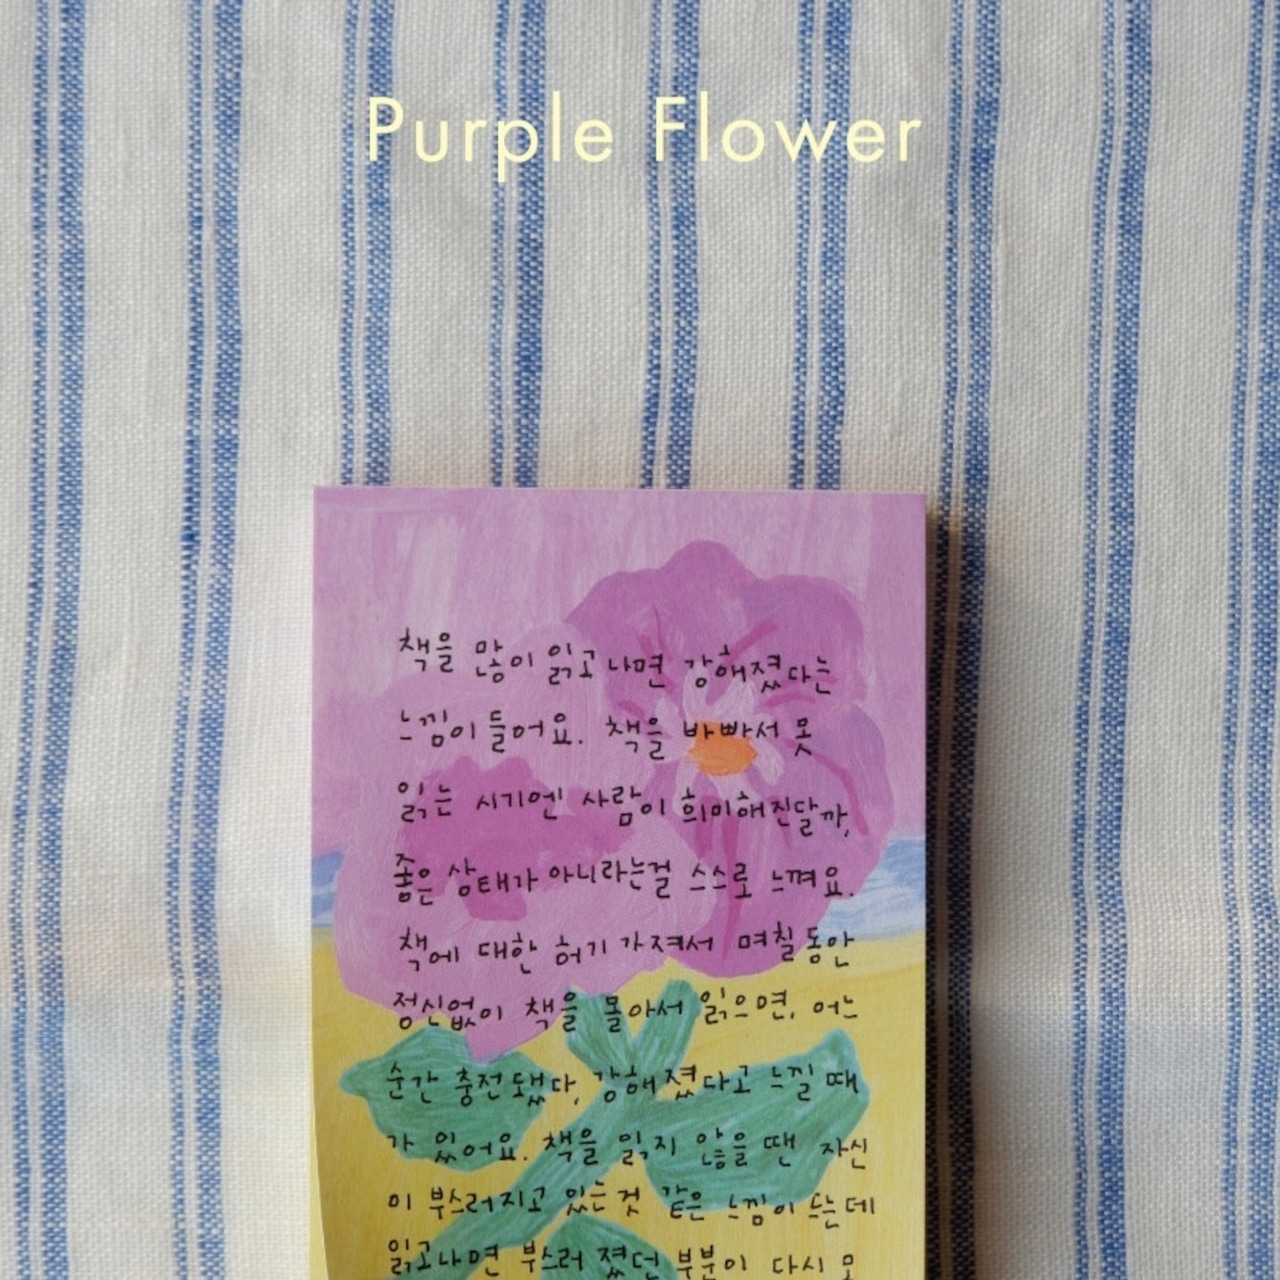 Purple Flower
책을 많이 읽고 나면 강해졌다는
느낌이 들어요. 책을 바빠서 못
읽는 시기엔 사람이 희미해진달까,
좋은 상태가 아니라는걸 스스로 느껴요.
책에 대한 허기 가져서 며칠 동안
정신없이 책을 몰아서 읽으면, 어느
순간 충전됐다, 강해졌다고 느낄 때
가 있어요. 책을 읽지 않을 땐 자신
이 부스러지고 있는 것 같은 느낌이 드는데
읽고나면 부스러졌던 부분이 다시 모